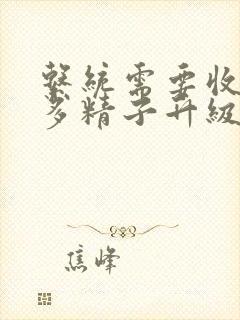 繫統需要收
多精子升級
焦峰